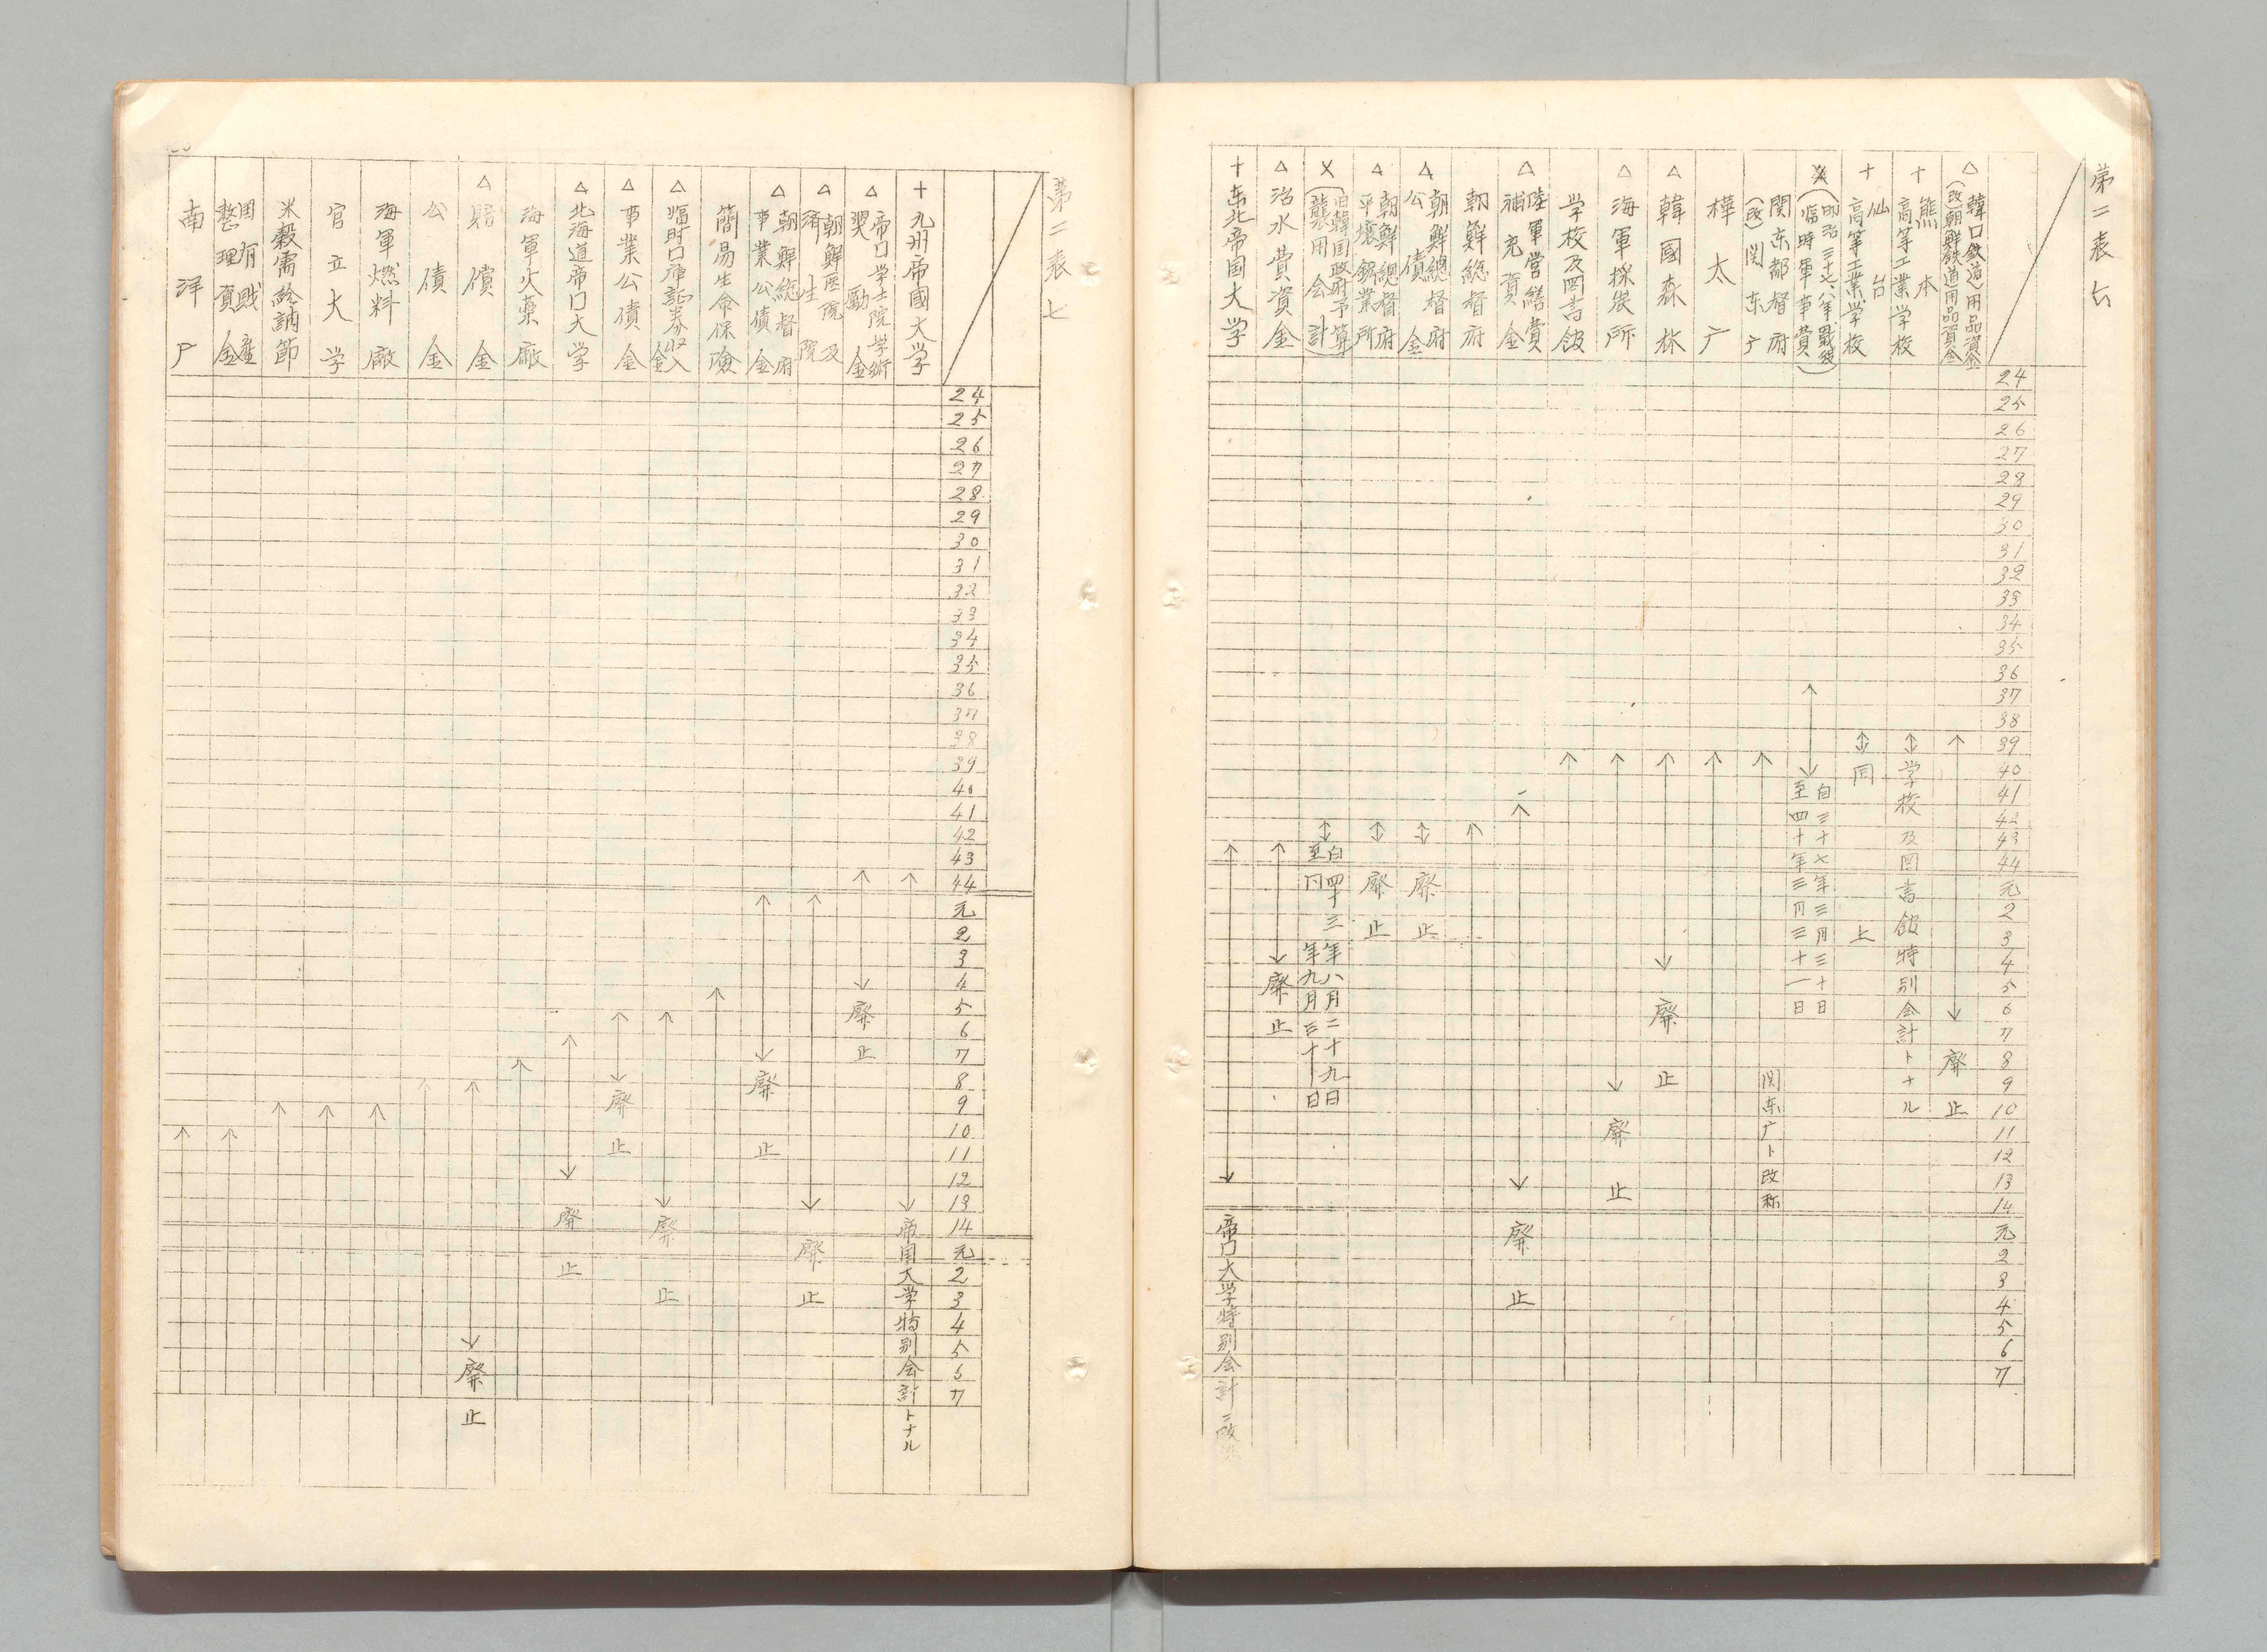 第二表六
24
25
26
27
28
29
30
31
32
33
34
35
36
37
38
39
40
41
42
43
44
元
2
3
4
5
6
7
8
9
10
11
12
13
14
元
2
3
4
5
6
7
△ 韓口鉄道用品資金
(改朝鮮鉄道用品資金)
廃止
十 熊本
高等工業学校
学校及図書館特別会計トナル
十 仙台
高等工業学校
同上
(明治三十七八年戦役
臨時軍事費)
自三十七年三月三十日
至四十年三月三十一日
関东都督府
(改)関东广
関东广ト改称
樺太广
△ 韓國森林
廃止
△ 海軍採炭所
廃止
学校及図書館
△ 陸軍営繕費
補充資金
廃止
朝鮮総督府
△ 朝鮮總督府
公債金
廃止
△ 朝鮮總督府
平壤鉱業所
廃止
X (旧韓国政府予算
襲用会計)
自四十三年八月二十九日
至同年九月三十日
△ 治水費資金
廃止
十 东北帝国大学
帝口大学特別会計ニ改
第二表七
24
25
26
27
28
29
30
31
32
33
34
35
36
37
38
39
40
41
42
43
44
元
2
3
4
5
6
7
8
9
10
11
12
13
14
元
2
3
4
5
6
7
十 九州帝國大学
帝国大学特別会計トナル
△ 帝口学士院学術
奨励金
廃止
△ 朝鮮医院及
済生院
廃止
△ 朝鮮総督府
事業公債金
廃止
簡易生命保険
△ 臨時口庫証券収入金
廃止
△ 事業公債金
廃止
△ 北海道帝口大学
廃止
海軍火薬廠
△ 賠償金
廃止
公債金
海軍燃料廠
官立大学
米穀需給調節
国有財産
整理資金
南洋广